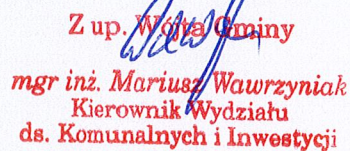 Z up. Wójta Gminy
mgr inż. Mariusz Wawrzyniak
Kierownik Wydziału
ds. Komunalnych i Inwestycji